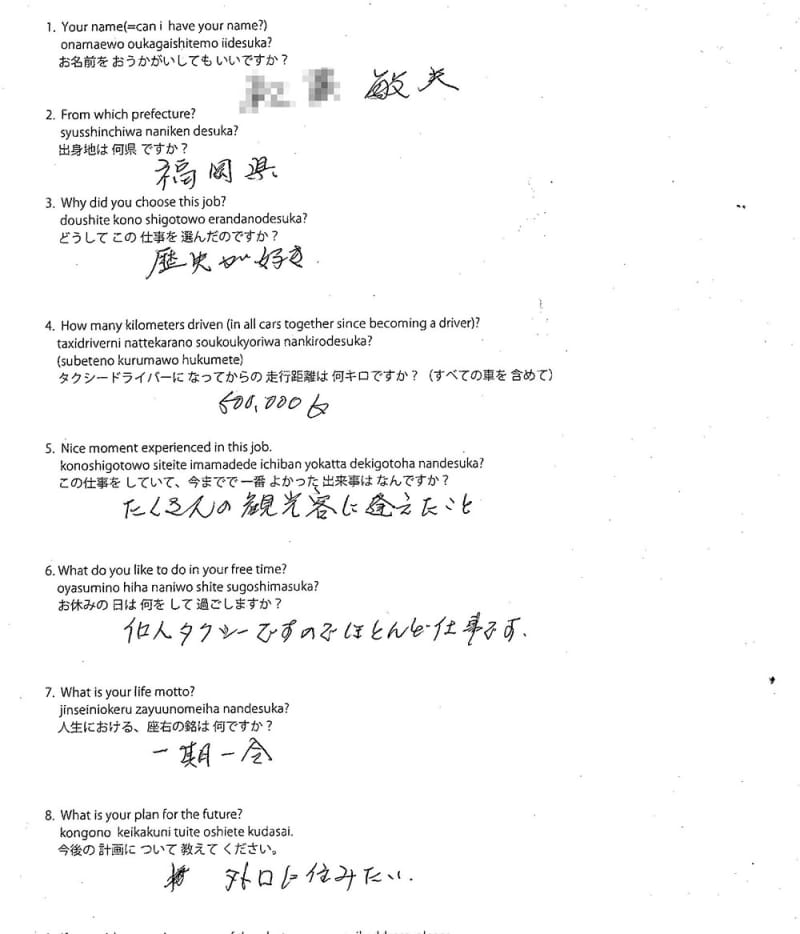 1. Your name(=can i have your name?)
onamaewo oukagaishitemo iidesuka?
お名前を おうかがいしても いいですか？
敏夫
2. From which prefecture?
syusshinchiwa naniken desuka?
出身地は 何県 ですか？
福岡県
3. Why did you choose this job?
doushite kono shigotowo erandanodesuka?
どうして この 仕事を 選んだのですか？
歴史が好き
4. How many kilometers driven (in all cars together since becoming a driver)?
taxidriverni nattekarano soukoukyoriwa nankirodesuka?
(subeteno kurumawo hukumete)
タクシードライバーに なってからの 走行距離は 何キロですか？（すべての車を 含めて）
500,000
5. Nice moment experienced in this job.
konoshigotowo siteite imamadede ichiban yokatta dekigotoha nandesuka?
この仕事を していて、今までで一番 よかった 出来事は なんですか？
たくさんの観光客に逢えたこと
6. What do you like to do in your free time?
oyasumino hiha naniwo shite sugoshimasuka?
お休みの 日は 何を して 過ごしますか？
個人タクシーですのでほとんど仕事です.
7. What is your life motto?
jinseiniokeru zayuunomeiha nandesuka?
人生における、座右の銘は 何ですか？
一期一会
8. What is your plan for the future?
kongono keikakuni tuite oshiete kudasai.
今後の 計画に ついて 教えて ください。
外国に住みたい.